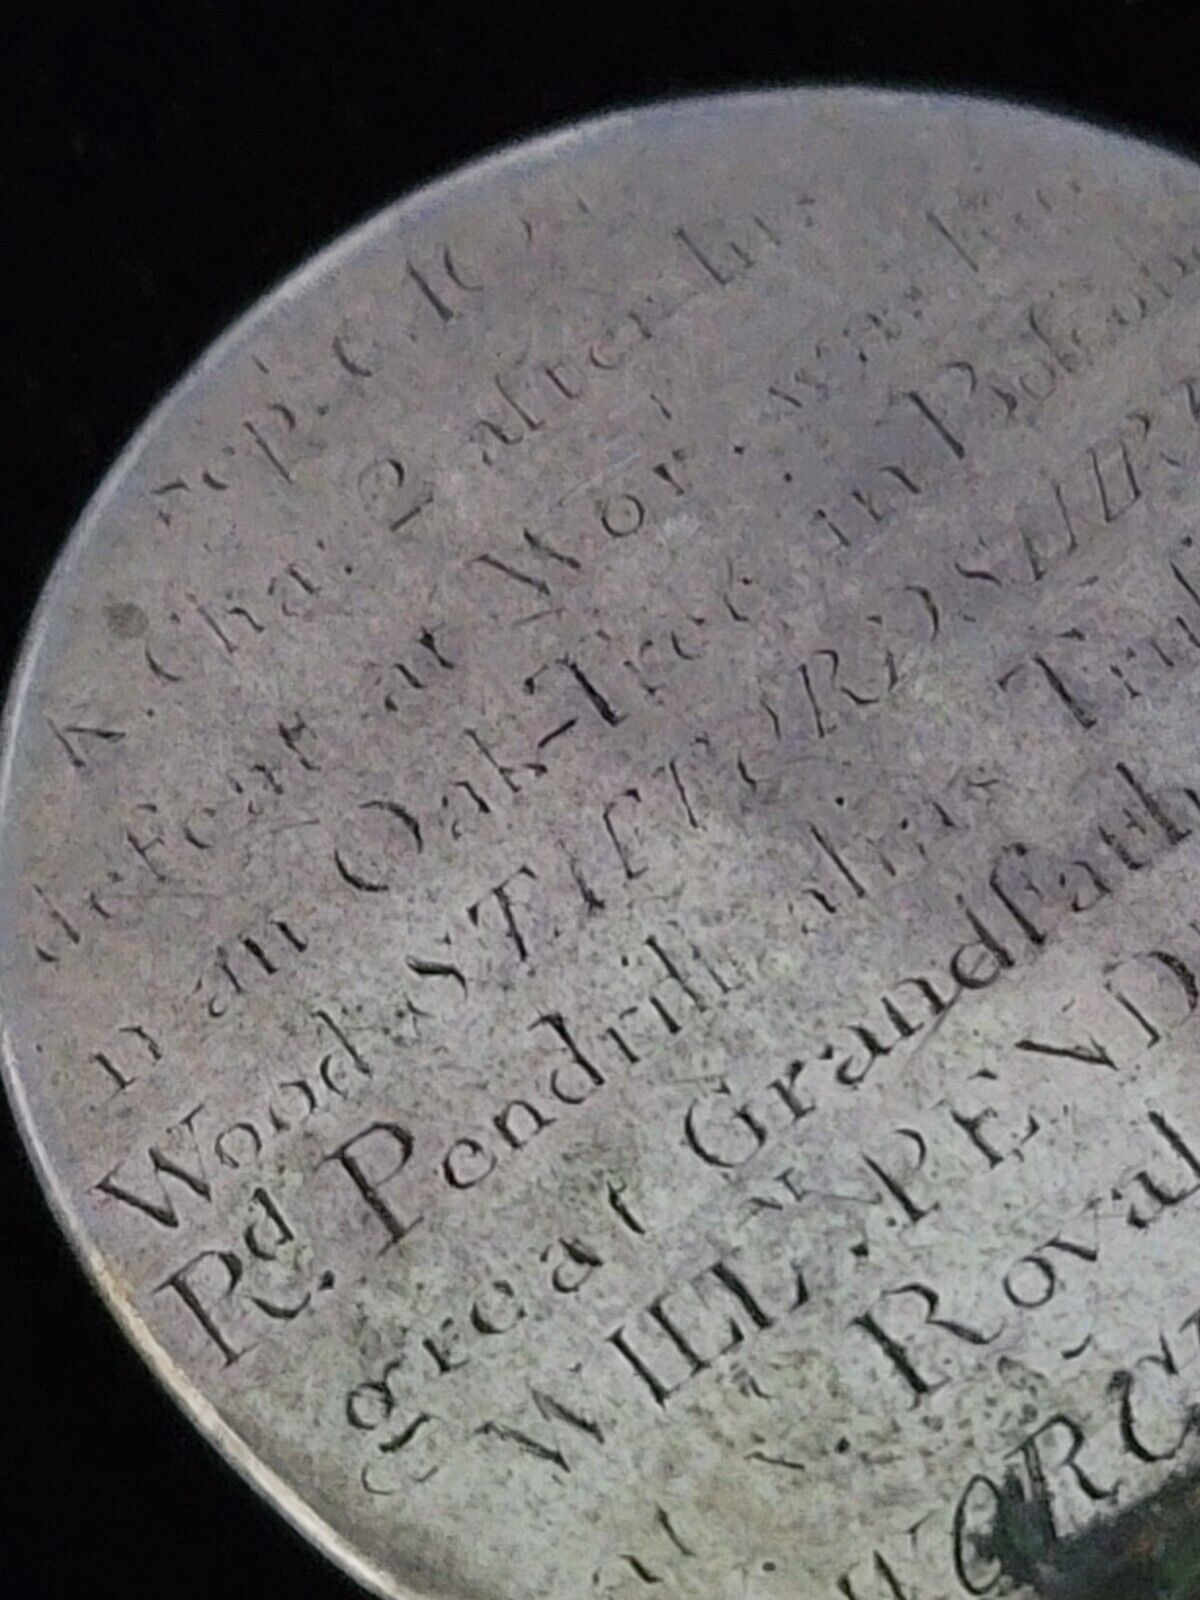 Sep. 6. 16
K. Cha: 2 after his
defeat at Wor: was
in an Oak-Tree in Boscob
Wood STAFFORDSHIR
Rd. Pendrill alias Tru
great Grandfath
WILL. PEND
Royal